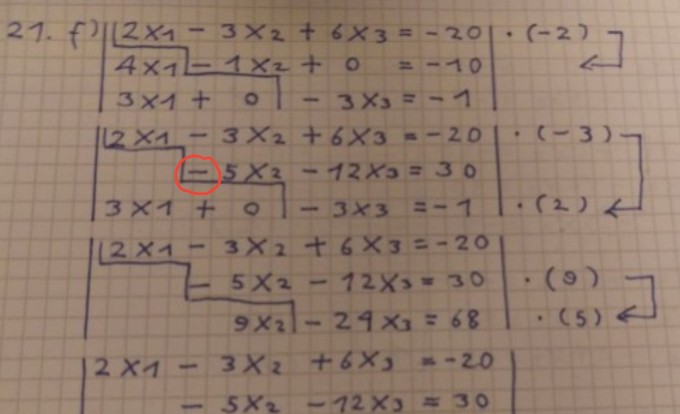 21. f) 2x1 - 3x2 + 6x3 = -20 | · (-2)
4x1 - 1x2 + 0 = -10
3x1 + 0 - 3x3 = -1
2x1 - 3x2 + 6x3 = -20 | · (-3)
- 5x2 - 12x3 = 30
3x1 + 0 - 3x3 = -1 | · (2)
2x1 - 3x2 + 6x3 = -20
- 5x2 - 12x3 = 30 | · (9)
9x2 - 24x3 = 68 | · (5)
2x1 - 3x2 + 6x3 = -20
- 5x2 - 12x3 = 30